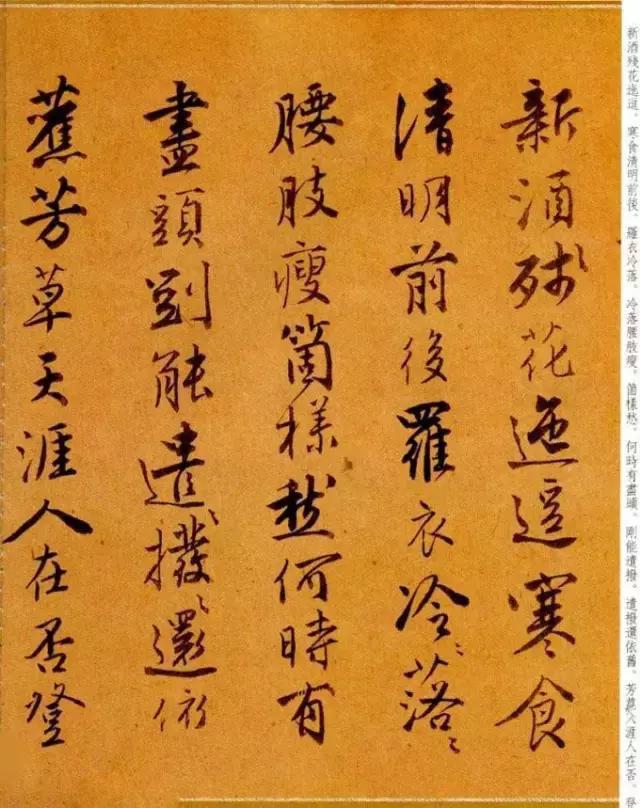 新酒殘花迤逗。寒食清明前後。羅衣冷落。冷落腰肢瘦。箇樣愁。何時有盡頭。剛能遣撥。遣撥還依舊。芳草天涯人在否。
新酒殘花迤逗寒食
清明前後羅衣冷〻落〻
腰肢瘦箇樣愁何時有
盡頭剛能遣〻撥〻還依
舊芳草天涯人在否登